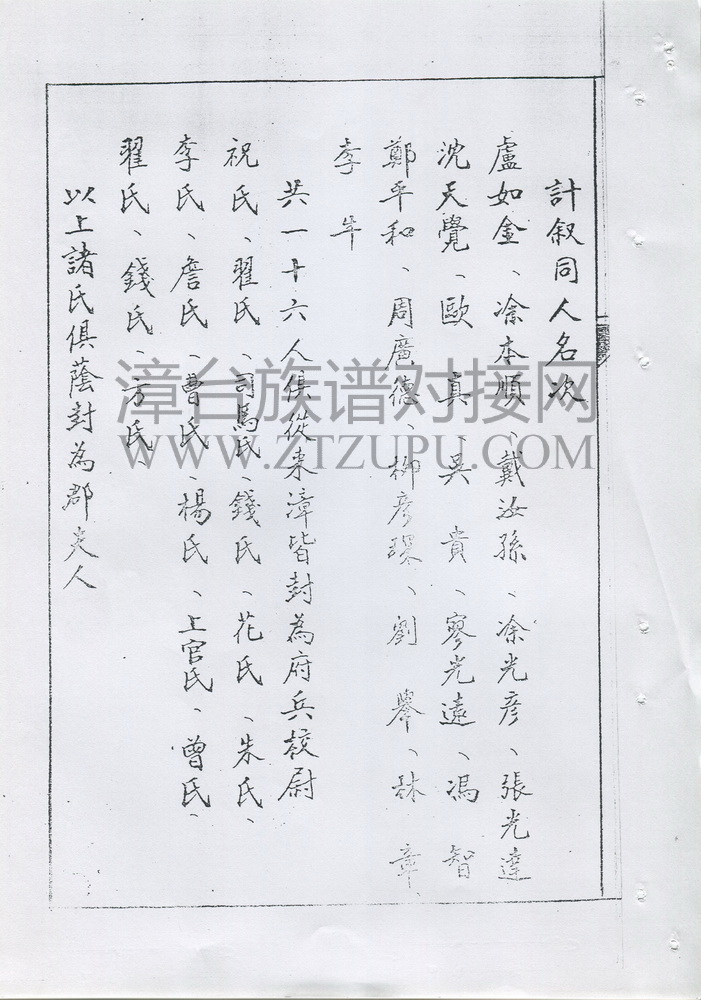 計叙同人名次
盧如金、凃本順、戴汝孫、凃光彥、張光達
沈天覺、歐真、吳貴、廖光遠、馮智
鄭平和、周廣德、柳彥琛、劉舉、林章、
李牛
共一十六人俱從来漳皆封為府兵校尉
祝氏、翟氏、司馬氏、錢氏、花氏、朱氏、
李氏、詹氏、曹氏、楊氏、上官氏、曾氏、
翟氏、錢氏、方氏、
以上諸氏俱蔭封為郡夫人
漳台族谱对接网
WWW.ZTZUPU.COM